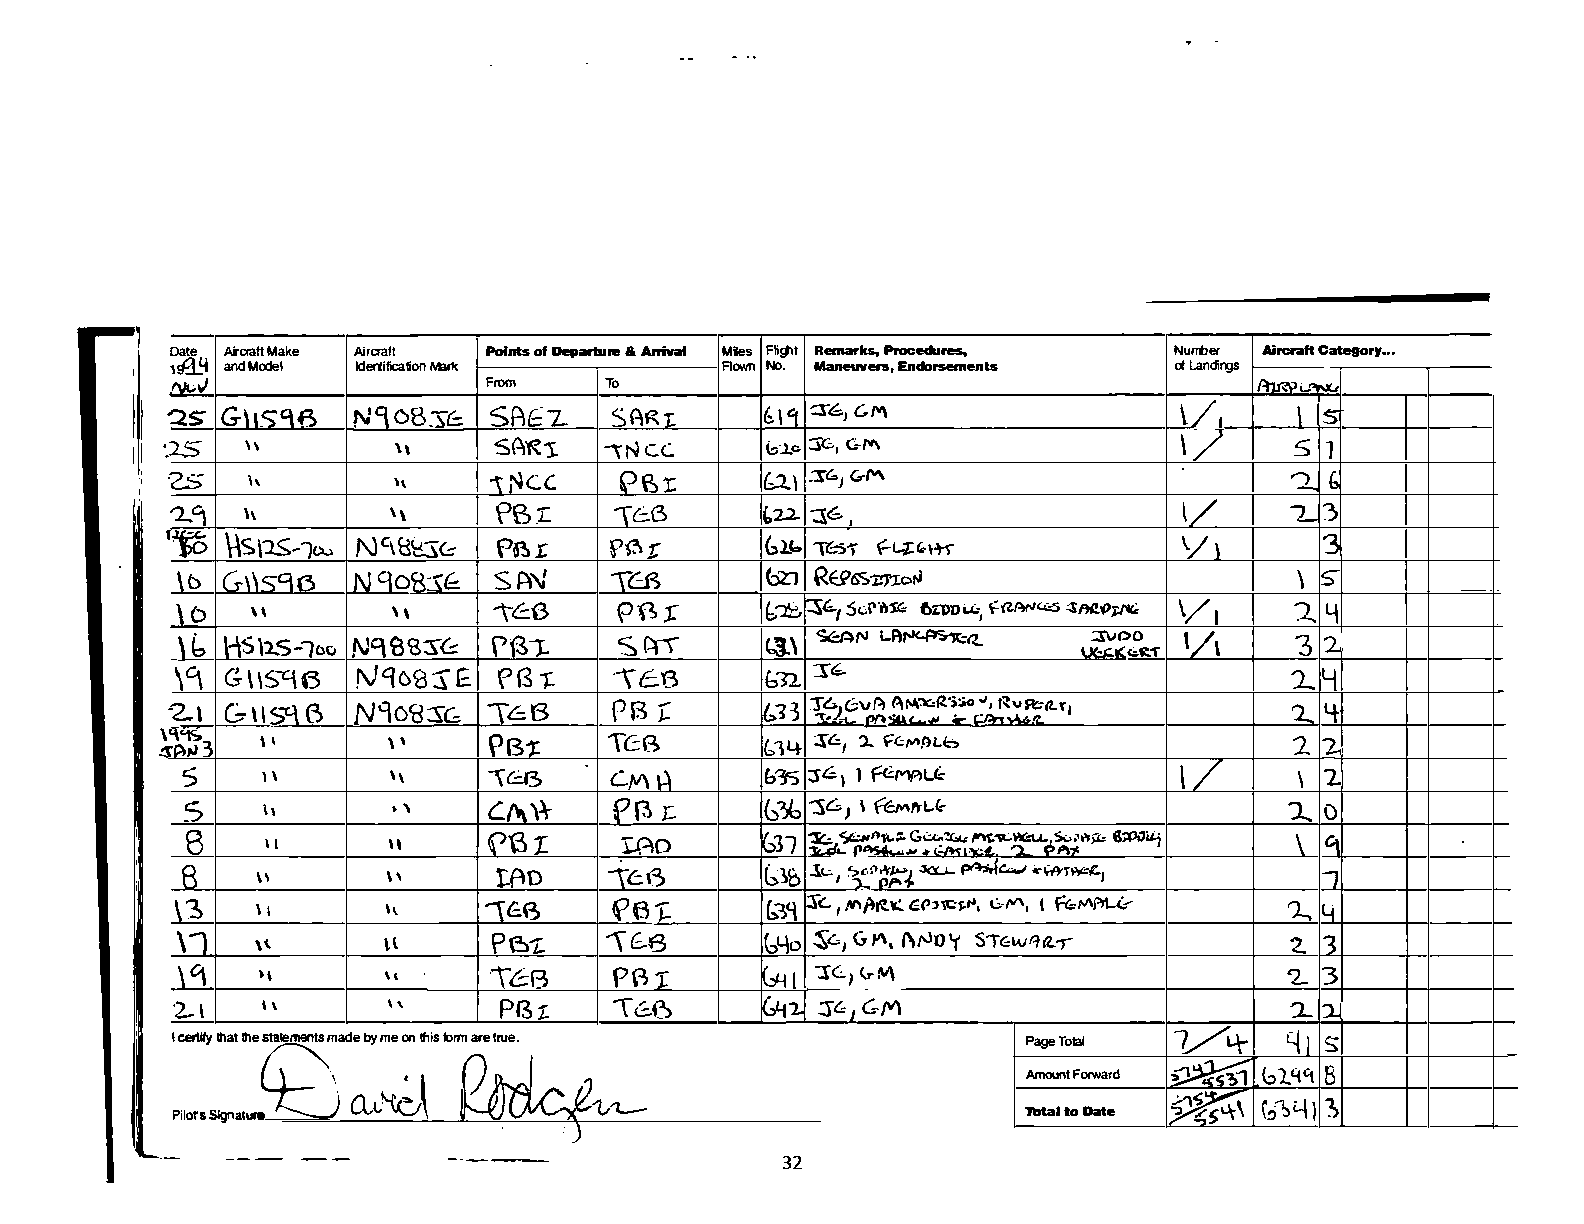 Date Aircraft Make Aircraft Points of Departure & Arrival Miles Flight Remarks, Procedures, Number Aircraft Category...
1994 and Model Identification Mark Flown No. Maneuvers, Endorsements of Landings
NOV From To AIRPLANE
25 G1159B N908JE SAEZ SARI 619 JE, GM 1/1 1 5
25 " " SARI TNCC 620 JE, GM 1/ 5 7
25 " " TNCC PBI 621 JE, GM 2 6
29 " " PBI TEB 622 JE, 1/ 2 3
DEC HS125-700 N988JE PBI PBI 626 TEST FLIGHT 1/1 3
10 G1159B N908JE SAV TEB 627 REPOSITION 1 5
10 " " TEB PBI 628 JE, SOPHIE BIDDLE, FRANCES JARDINE 1/1 2 4
16 HS125-700 N988JE PBI SAT 631 SEAN LANCASTER JUDD 1/1 3 2
19 G1159B N908JE PBI TEB 632 JE 2 4
21 G1159B N908JE TEB PBI 633 JE, EVA ANDERSSON, RUPERT, 2 4
JOEL PASHCOW + FATHER
1995
JAN 3 " " PBI TEB 634 JE, 2 FEMALES 2 2
5 " " TEB CMH 635 JE, 1 FEMALE 1/ 1 2
5 " " CMH PBI 636 JE, 1 FEMALE 2 0
8 " " PBI IAD 637 JE, SENATOR GEORGE MITCHELL, SOPHIE BIDDLE, 1 9
JOEL PASHCOW + FATHER, 2 PAX
8 " " IAD TEB 638 JE, SOPHIE, JOEL PASHCOW + FATHER, 7
2 PAX
13 " " TEB PBI 639 JE, MARK EPSTEIN, GM, 1 FEMALE 2 4
17 " " PBI TEB 640 JE, GM, ANDY STEWART 2 3
19 " " TEB PBI 641 JE, GM 2 3
21 " " PBI TEB 642 JE, GM 2 2
I certify that the statements made by me on this form are true. Page Total 7/4 41 5
Amount Forward 5747/5537 6299 8
Pilot's Signature David Rodgers Total to Date 5754/5541 6341 3
32